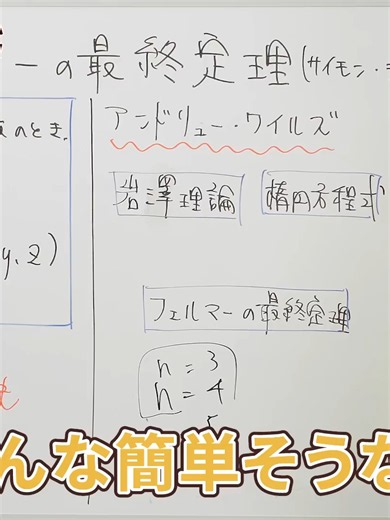 ーの最終定理(サイモン・
のとき,
y, z)
アンドリュー・ワイルズ
岩澤理論
楕円方程式
フェルマーの最終定理
n = 3
n = 4
5
んな簡単そうな